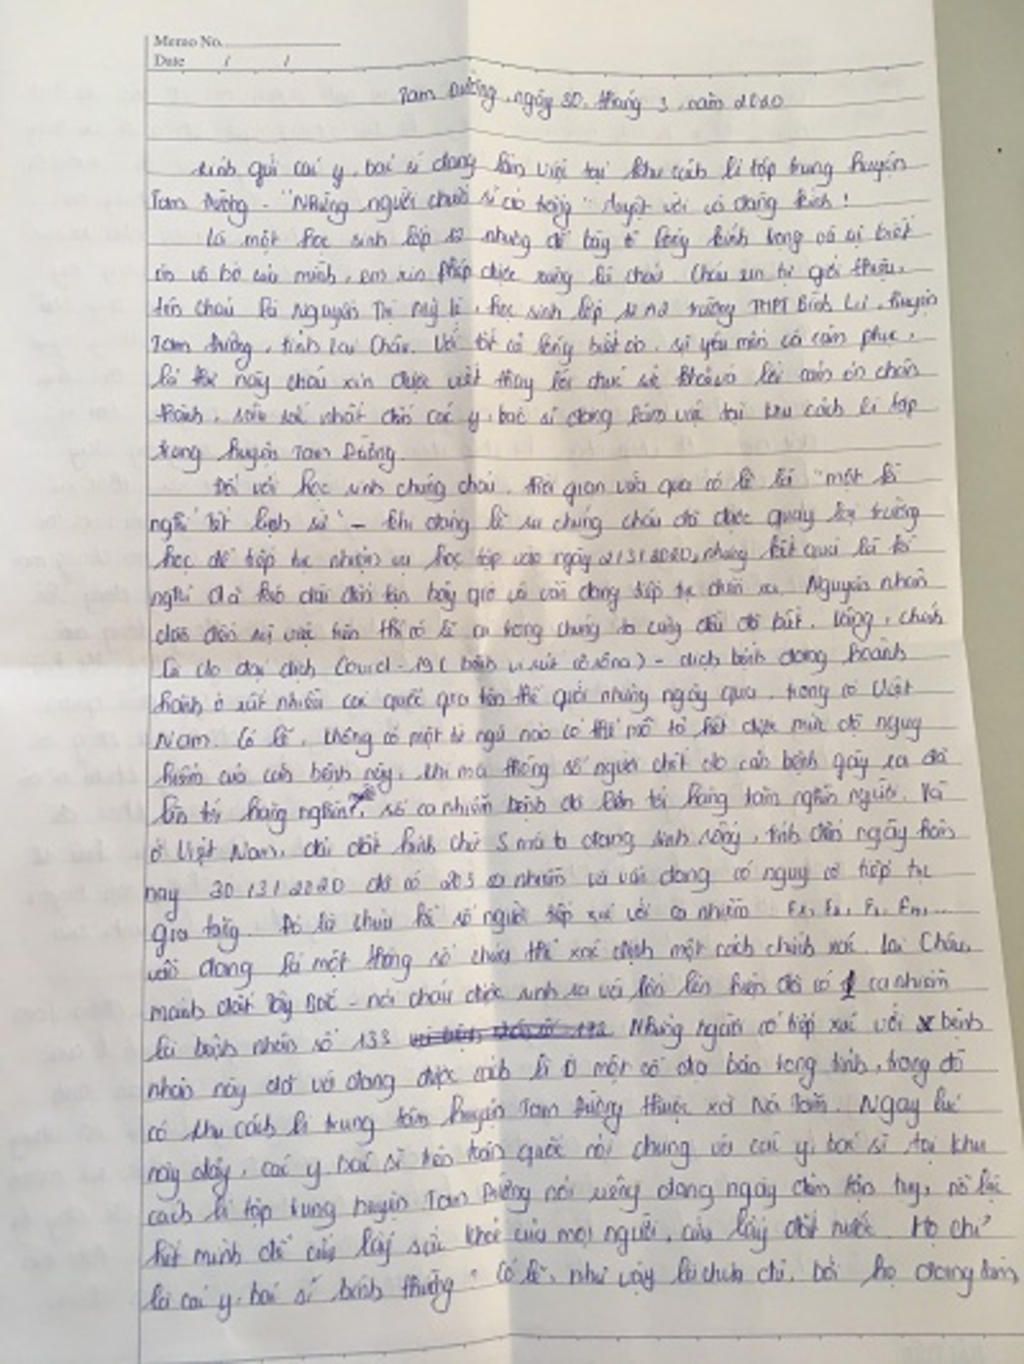 Memo No.
Date / /
Tam Đường, ngày 30, tháng 3, năm 2020
Kính gửi các y, bác sĩ đang làm việc tại khu cách li tập trung huyện
Tam Đường - "Những người chiến sĩ áo trắng" tuyệt vời và đáng kính!
Là một học sinh lớp 12 nhưng để bày tỏ lòng kính trọng và sự biết
ơn vô bờ của mình, em xin phép được xưng là cháu. Cháu xin tự giới thiệu,
tên cháu là Nguyễn Thị Mỹ Lệ, học sinh lớp 12A2 trường THPT Bình Lư, huyện
Tam Đường, tỉnh Lai Châu. Với tất cả lòng biết ơn, sự yêu mến và cảm phục,
lá thư này cháu xin được viết thay lời chúc sức khỏe và lời cảm ơn chân
thành, sâu sắc nhất đến các y, bác sĩ đang làm việc tại khu cách li tập
trung huyện Tam Đường.
Đối với học sinh chúng cháu, thời gian vừa qua có lẽ là "một kì
nghỉ Tết lịch sử" - khi đáng lẽ ra chúng cháu đã được quay lại trường
học để tiếp tục nhiệm vụ học tập vào ngày 2/3/2020, nhưng kết quả là kì
nghỉ đã kéo dài đến tận bây giờ và vẫn đang tiếp tục diễn ra. Nguyên nhân
dẫn đến sự việc trên thì có lẽ ai trong chúng ta cũng đều đã biết. Vâng, chính
là do đại dịch Covid-19 (bệnh vi rút corona) - dịch bệnh đang hoành
hành ở rất nhiều các quốc gia trên thế giới những ngày qua, trong có Việt
Nam. Có lẽ, không có một từ ngữ nào có thể mô tả hết được mức độ nguy
hiểm của căn bệnh này, khi mà thông số người chết do căn bệnh gây ra đã
lên tới hàng nghìn, số ca nhiễm bệnh đã lên tới hàng trăm nghìn người. Và
ở Việt Nam, dải đất hình chữ S mà ta đang sinh sống, tính đến ngày hôm
nay 30/3/2020 đã có 203 ca nhiễm và vẫn đang có nguy cơ tiếp tục
gia tăng. Đó là chưa kể số người tiếp xúc với ca nhiễm F1, F2, F3, Fn,...
vẫn đang là một thông số chưa thể xác định một cách chính xác. Lai Châu,
mảnh đất Tây Bắc - nơi cháu được sinh ra và lớn lên hiện đã có 1 ca nhiễm
là bệnh nhân số 133 Những người có tiếp xúc với bệnh
nhân này đã và đang được cách li ở một số địa bàn trong tỉnh, trong đó
có khu cách li trung tâm huyện Tam Đường thuộc xã Nà Tăm. Ngay lúc
này đây, các y, bác sĩ trên toàn quốc nói chung và các y, bác sĩ tại khu
cách li tập trung huyện Tam Đường nói riêng đang ngày đêm tận tụy, nỗ lực
hết mình để cứu lấy sức khỏe của mọi người, cứu lấy đất nước. Họ chỉ
là các y, bác sĩ bình thường? Có lẽ, như vậy là chưa đủ, bởi họ đang làm